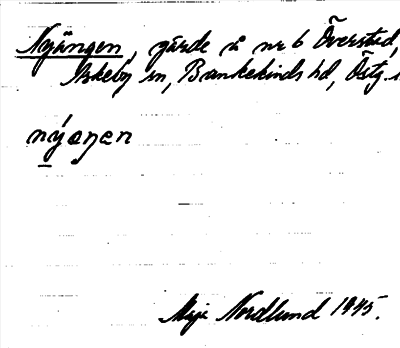 Nyängen, gärde å nr 6 Överstad,
Askeby sn, Bankekinds hd, Östg.
nýaŋen
Maja Nordlund 1945.